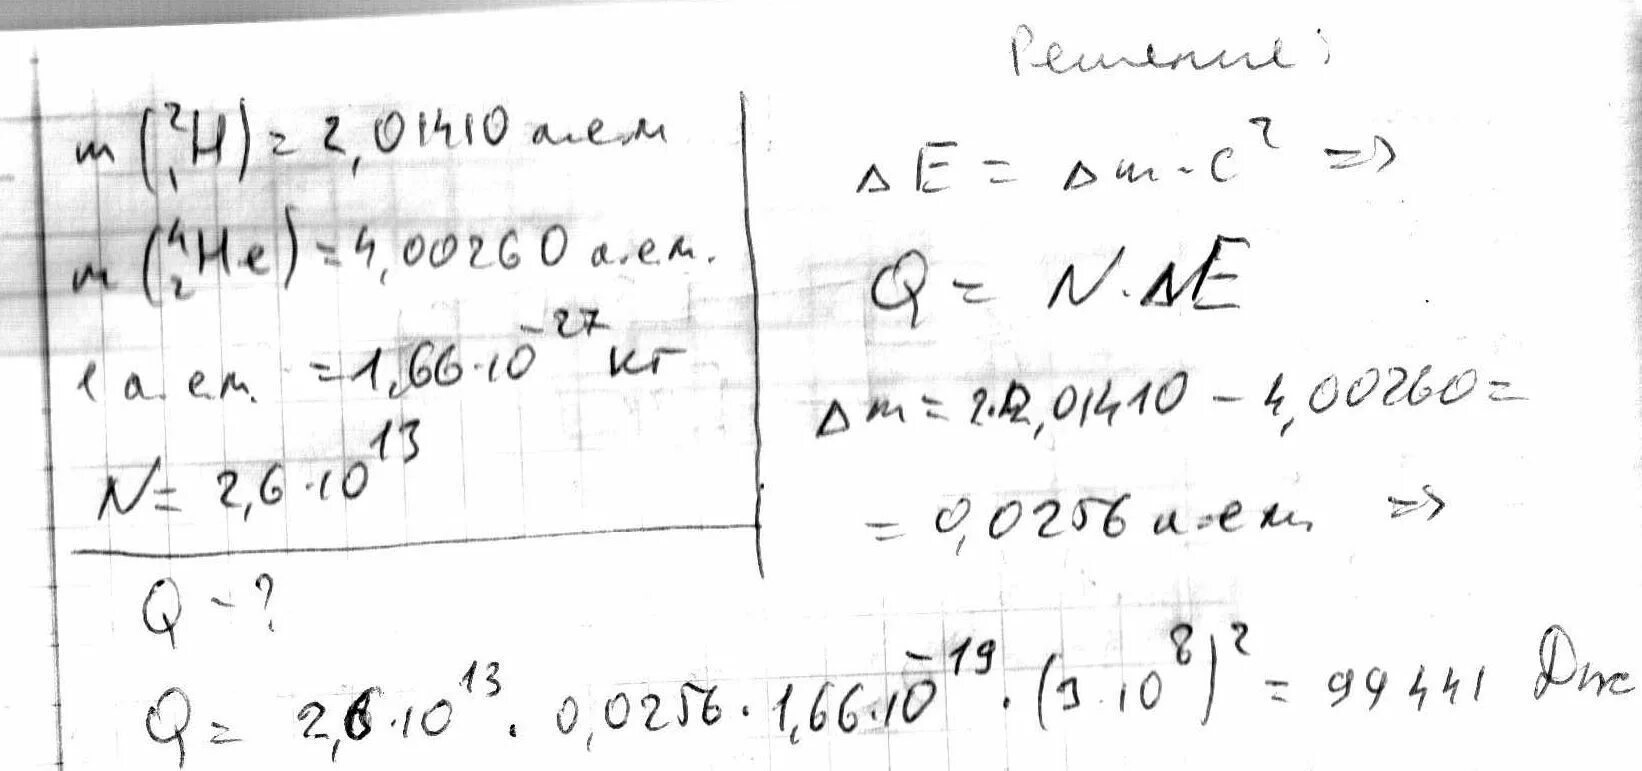 Решение:
m(²₁H) = 2,01410 а.е.м
m(⁴₂He) = 4,00260 а.е.м.
1 а.е.м. = 1,66·10⁻²⁷ кг
N = 2,6·10¹³
Q - ?
ΔE = Δm·c² =>
Q = N·ΔE
Δm = 2·2,01410 - 4,00260 =
= 0,0256 а.е.м. =>
Q = 2,6·10¹³ · 0,0256 · 1,66·10⁻¹⁹ · (3·10⁸)² = 99441 Дж